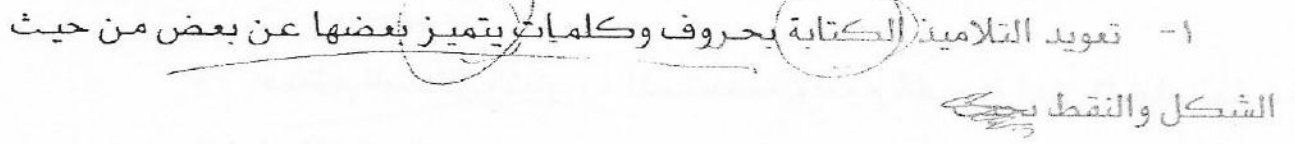 ١- تعويد التلاميذ الكتابة بحروف وكلمات يتميز بعضها عن بعض من حيث
الشكل والنقط